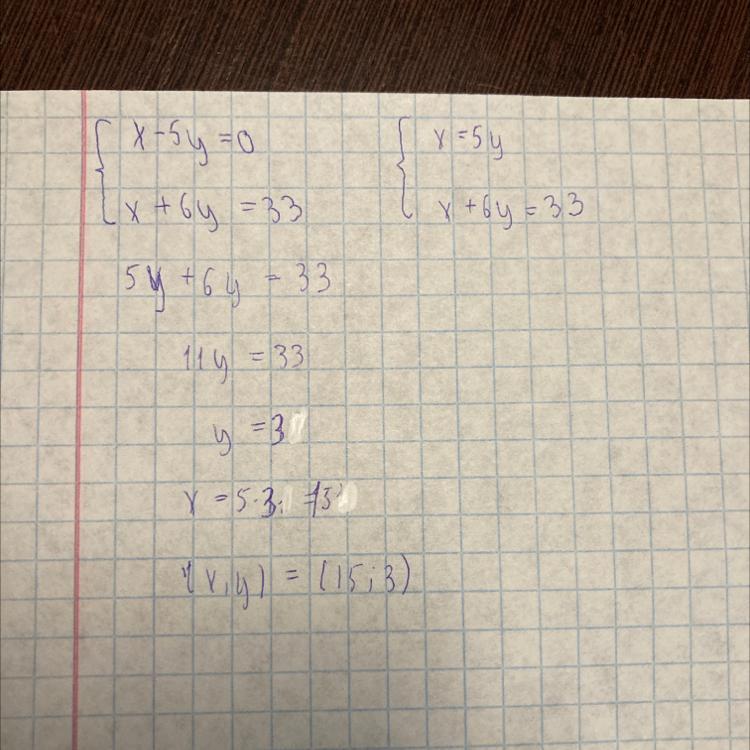 { x - 5y = 0
x + 6y = 33
{ x = 5y
x + 6y = 33
5y + 6y = 33
11y = 33
y = 3
x = 5·3 = 15
(x, y) = (15; 3)